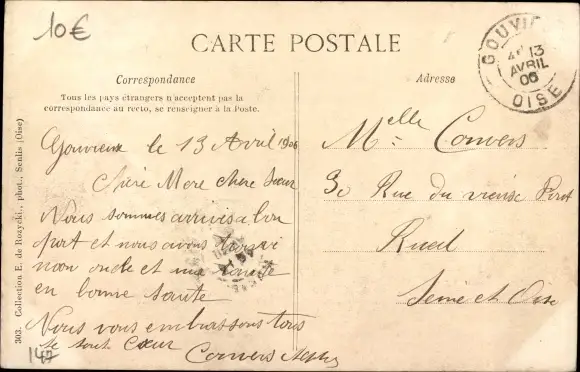 10€
CARTE POSTALE
GOUVI
4E 13
AVRIL
06
OISE
Correspondance
Tous les pays étrangers n'acceptent pas la
correspondance au recto, se renseigner à la Poste.
Gouvieux le 13 Avril 1906
Chère Mere chere Sœur
Nous sommes arrivés a bon
port et nous avons trouvé
mon oncle et ma tante
en bonne santé
Nous vous embrassons tous
de tout Cœur
Convers
Adresse
Melle Convers
30 Rue du vieux Pont
Rueil
Seine et Oise
303. Collection E. de Rozycki, phot., Senlis (Oise)
147